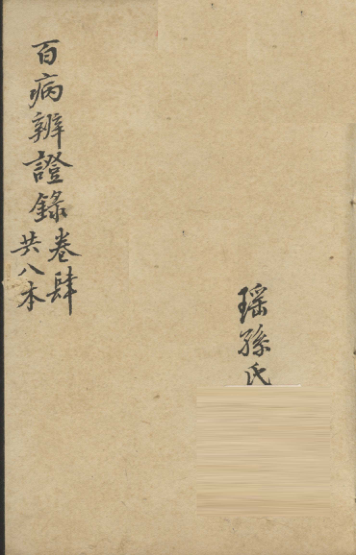 百病辨證錄卷肆
共八本
瑶孫氏